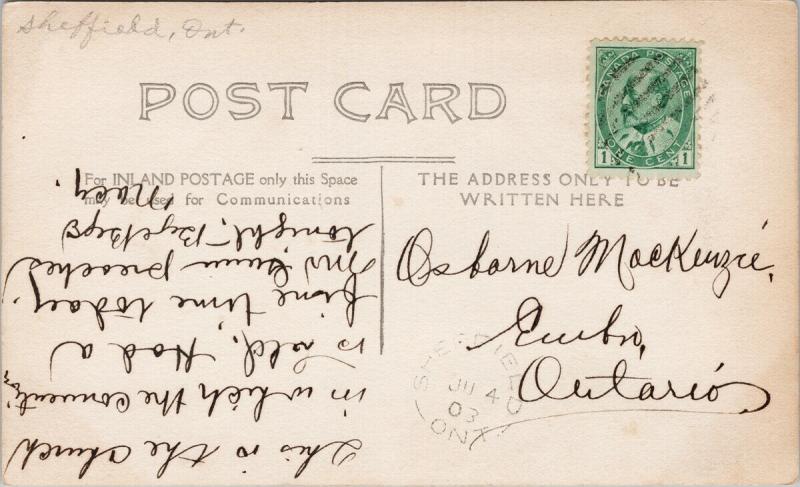 Sheffield, Ont.
POST CARD
CANADA POSTAGE
ONE CENT
1 1
For INLAND POSTAGE only this Space
may be used for Communications
THE ADDRESS ONLY TO BE
WRITTEN HERE
Osborne MacKenzie,
Embro,
Ontario
SHEFFIELD
JU 4
03
ONT
This is the Church
in which the convention
is held, Had a
fine time today.
Mr Gunn preaches
tonight. Bye Bye